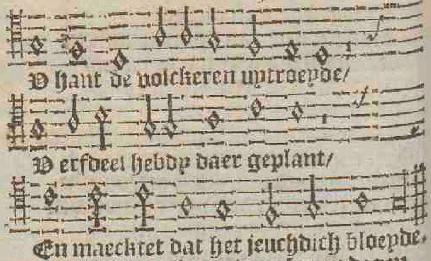 V hant de volckeren uytroeyde/
V erfdeel hebdy daer geplant/
En maecktet dat het jeuchdich bloeyde.